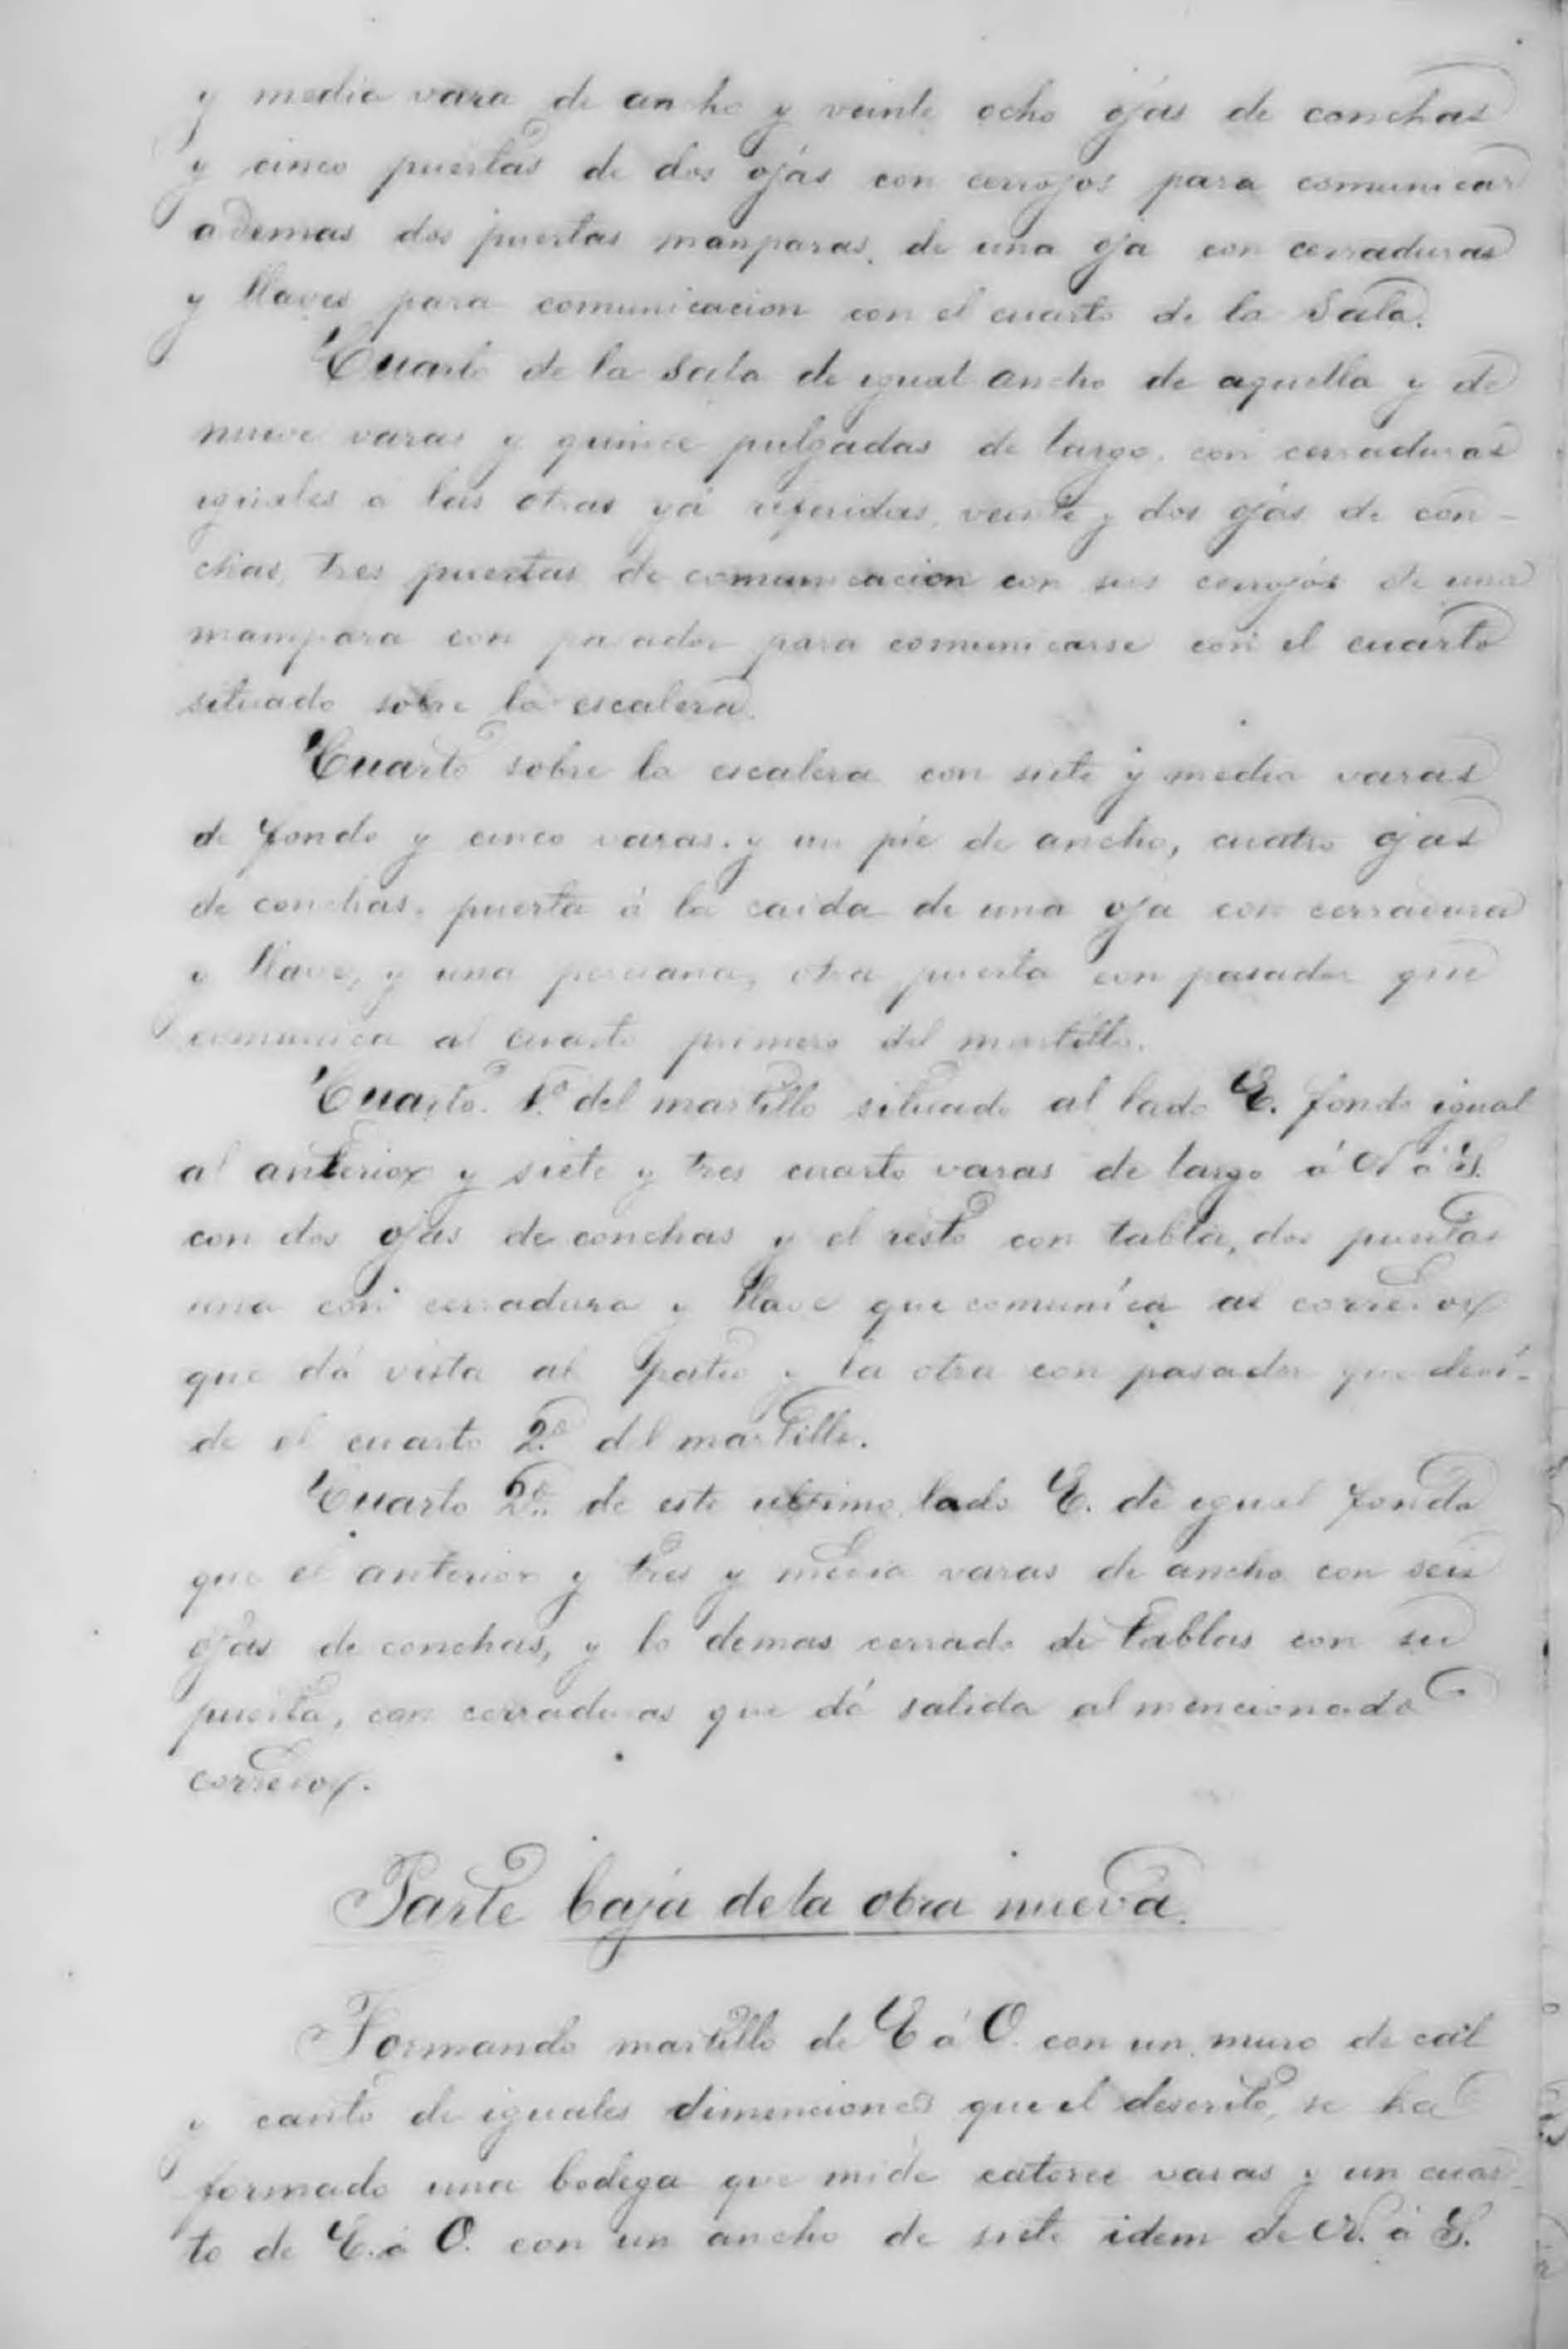 y media vara de ancho y veinte ocho ojas de conchas
y cinco puertas de dos ojas con cerrojos para comunicar
ademas dos puertas manparas, de una oja con cerraduras
y llaves para comunicacion con el cuarto de la Sala.
Cuarto de la Sala de igual ancho de aquella y de
nueve varas y quince pulgadas de largo, con cerraduras
iguales a las otras yá referidas, veinte y dos ojas de con-
chas, tres puertas de comunicacion con sus cerrojos de una
mampara con pasador para comunicarse con el cuarto
situado sobre la escalera.
Cuarto sobre la escalera con siete y media varas
de fondo y cinco varas y un pié de ancho, cuatro ojas
de conchas, puerta á la caida de una oja con cerradura
y llave, y una persiana, otra puerta con pasador que
comunica al cuarto primero del martillo.
Cuarto 1º del martillo situado al lado E. fondo igual
al anterior y siete y tres cuarto varas de largo á N á S.
con dos ojas de conchas y el resto con tabla, dos puertas
una con cerradura y llave que comunica al corredor
que dá vista al patio y la otra con pasador que deví-
de el cuarto 2º del martillo.
Cuarto 2º de este ultimo lado E. de igual fondo
que el anterior y tres y media varas de ancho con seis
ojas de conchas, y lo demas cerrado de tablas con su
puerta, con cerraduras que dá salida al mencionado
corredor.
Parte baja de la obra nueva.
Formando martillo de E á O. con un muro de cal
y canto de iguales dimenciones que el descrito, se ha
formado una bodega que mide catorce varas y un cuar-
to de E. á O. con un ancho de siete idem de N. á S.